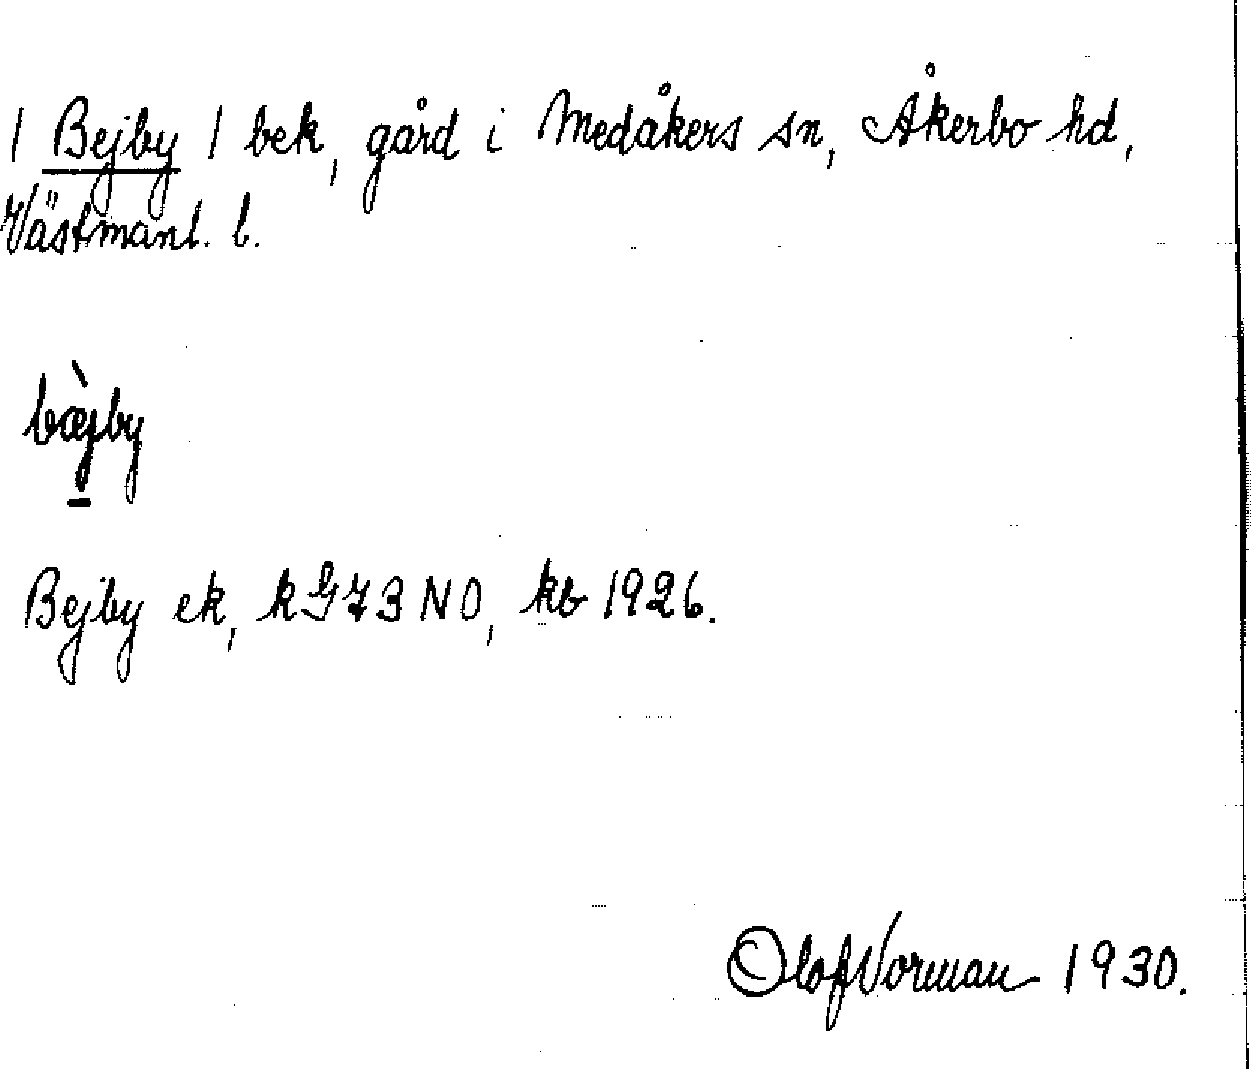 / Bejby / bek, gård i Medåkers sn, Åkerbo hd,
Västmanl. l.
bæ̀jby
Bejby ek, k G73 NO, kb 1926.
Olof Vorman 1930.